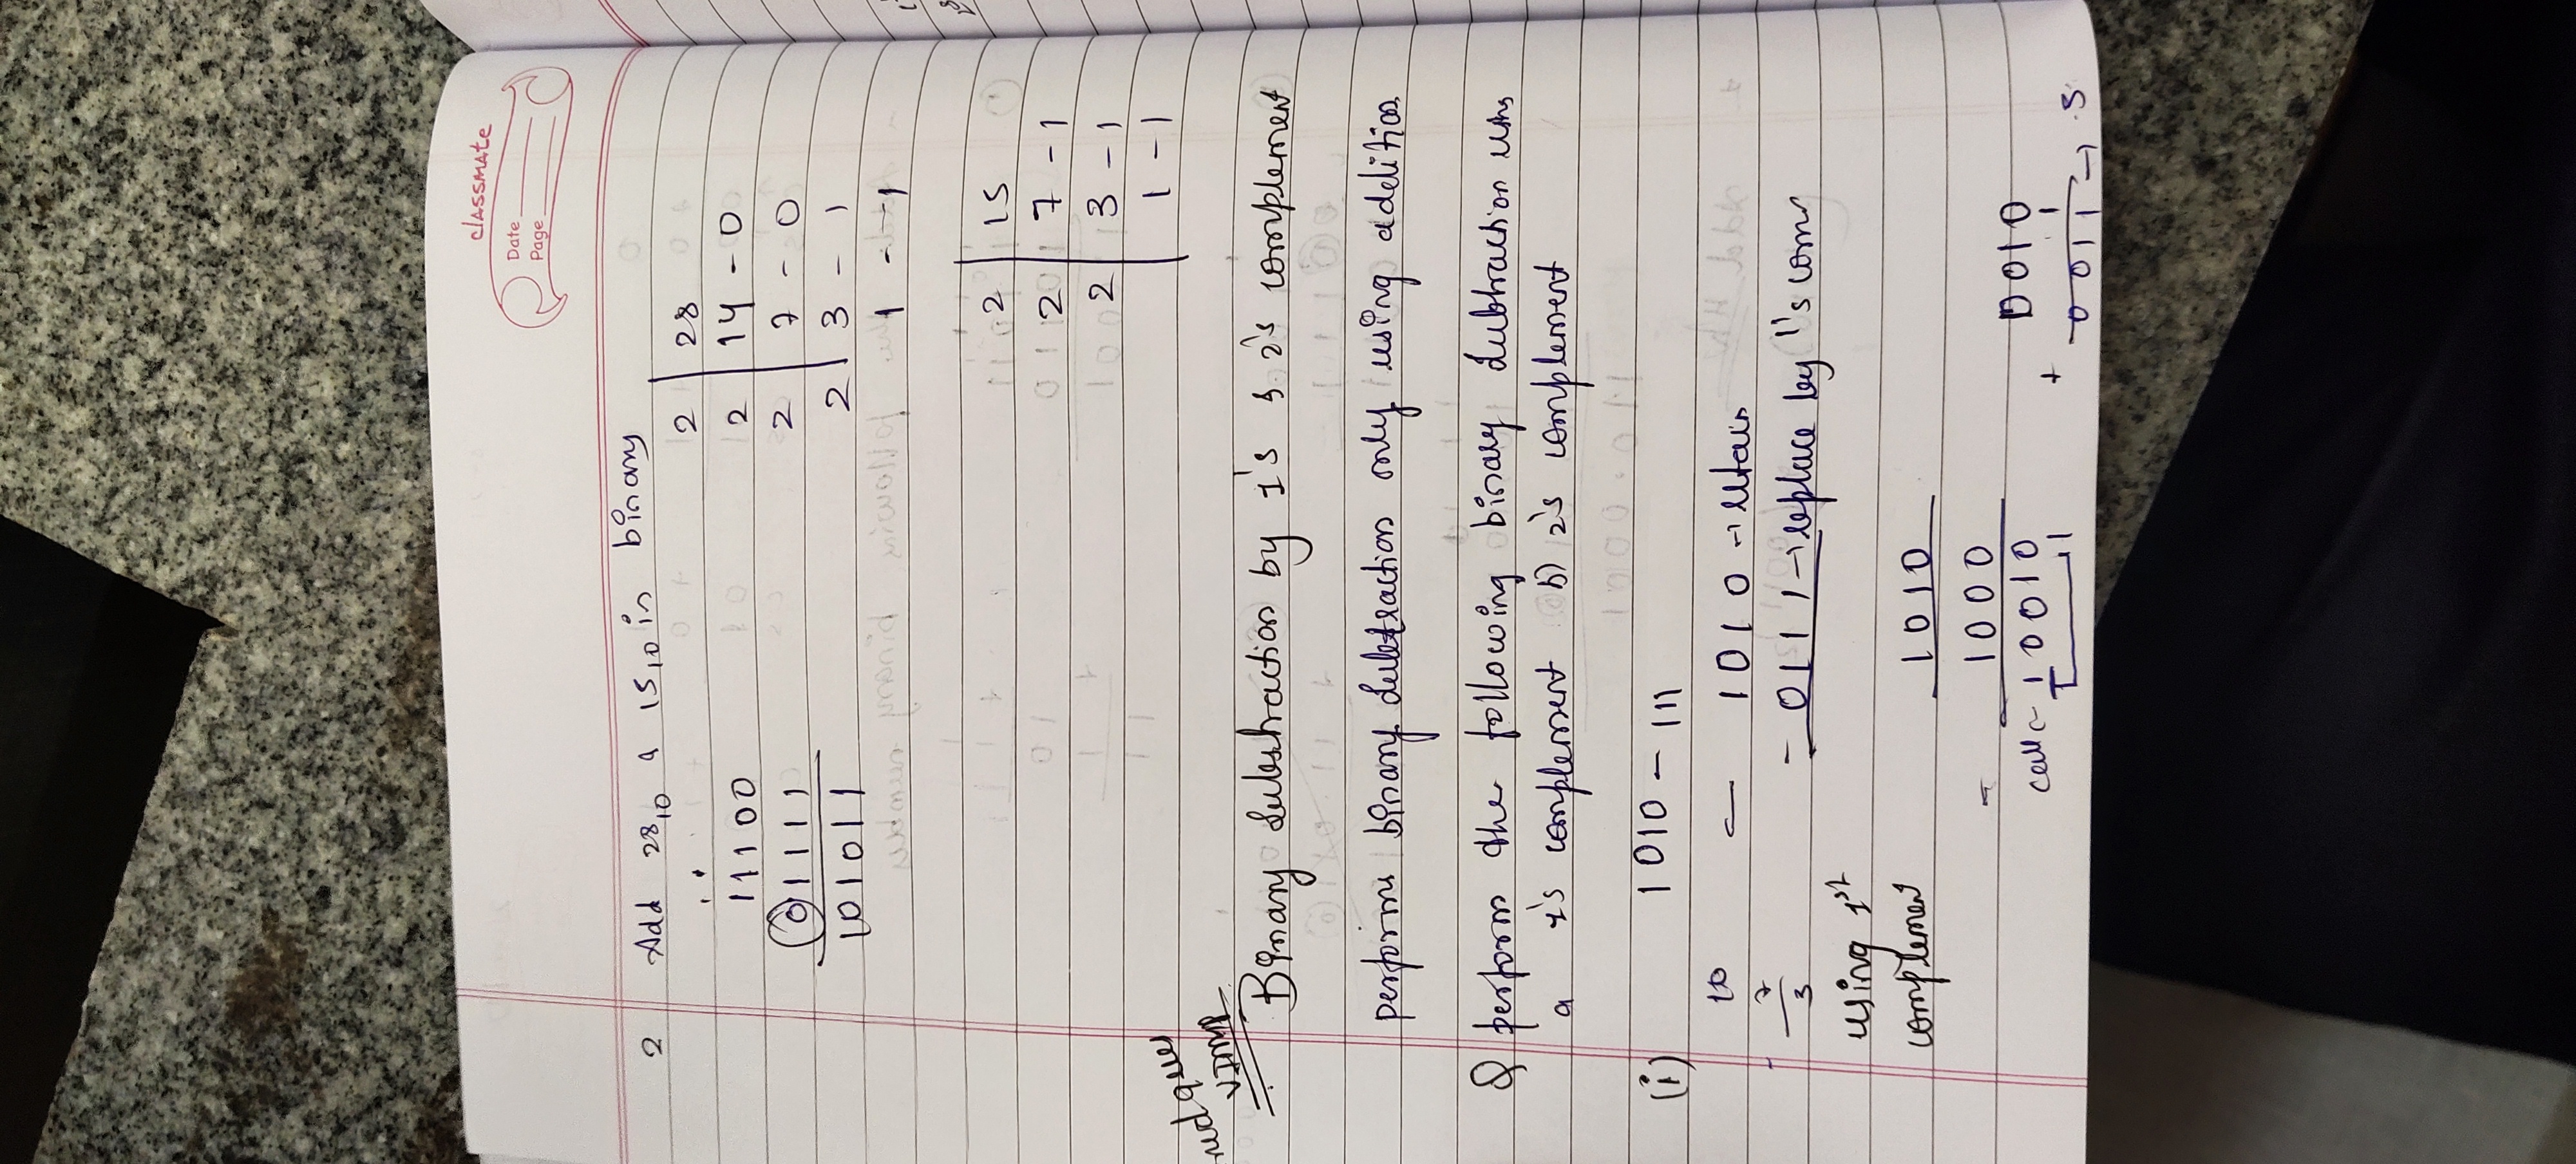 classmate
Date
Page
2 Add 28,10 & 15,10 in binary
11100
01111
101011
2 28
2 14 - 0
2 7 - 0
2 3 - 1
1 - 1
2 15
2 7 - 1
2 3 - 1
1 - 1
ques
VIMP
Binary Substraction by 1's & 2's complement
performs binary Subtraction only using addition
Q perform the following binary Subtraction
a 1's complement b) 2's complement
(i) 1010 - 111
10
- 7
3
1010 → retain
- 0111 → replace by 1's com
using 1st
complement
1010
1000
10010
1
0010
+ 1
0011 →